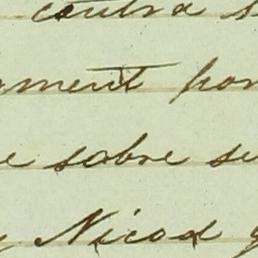 contra s
ament por
e sobre su
y Nicod g